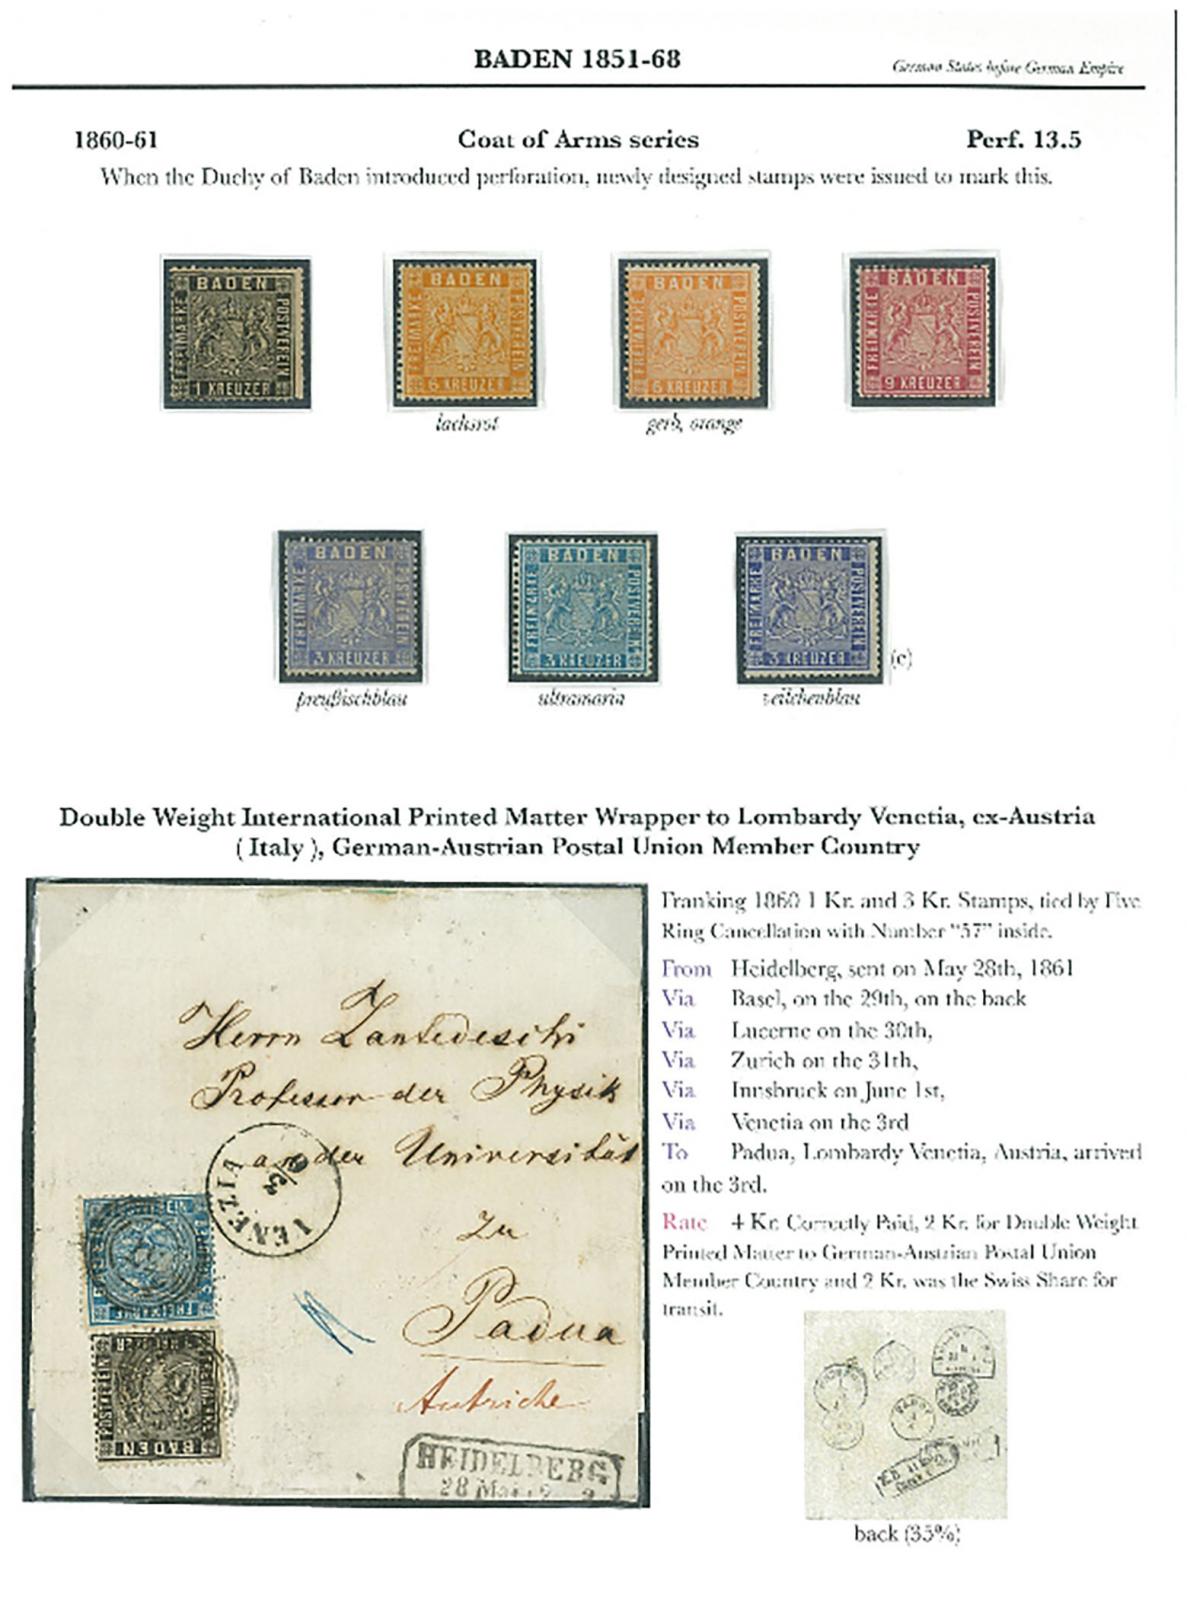 BADEN 1851-68
German States before German Empire
1860-61 Coat of Arms series Perf. 13.5
When the Duchy of Baden introduced perforation, newly designed stamps were issued to mark this.
BADEN
FREIMARKE
POSTVEREIN
1 KREUZER
BADEN
FREIMARKE
POSTVEREIN
6 KREUZER
BADEN
FREIMARKE
POSTVEREIN
6 KREUZER
BADEN
FREIMARKE
POSTVEREIN
9 KREUZER
lachsrot
gerb, orange
BADEN
FREIMARKE
POSTVEREIN
3 KREUZER
BADEN
FREIMARKE
POSTVEREIN
3 KREUZER
BADEN
FREIMARKE
POSTVEREIN
3 KREUZER
(c)
preußischblau
ultramarin
veilchenblau
Double Weight International Printed Matter Wrapper to Lombardy Venetia, ex-Austria
( Italy ), German-Austrian Postal Union Member Country
Herrn Zantedeschi
Professor der Physik
an der Universität
zu
Padua
Autriche
VENEZIA
3/6
FREIMARKE
POSTVEREIN
BADEN
HEIDELBERG
28 Mai
Franking 1860 1 Kr. and 3 Kr. Stamps, tied by Five
Ring Cancellation with Number "57" inside.
From Heidelberg, sent on May 28th, 1861
Via Basel, on the 29th, on the back
Via Lucerne on the 30th,
Via Zurich on the 31th,
Via Innsbruck on June 1st,
Via Venetia on the 3rd
To Padua, Lombardy Venetia, Austria, arrived
on the 3rd.
Rate 4 Kr. Correctly Paid, 2 Kr. for Double Weight
Printed Matter to German-Austrian Postal Union
Member Country and 2 Kr. was the Swiss Share for
transit.
back (35%)